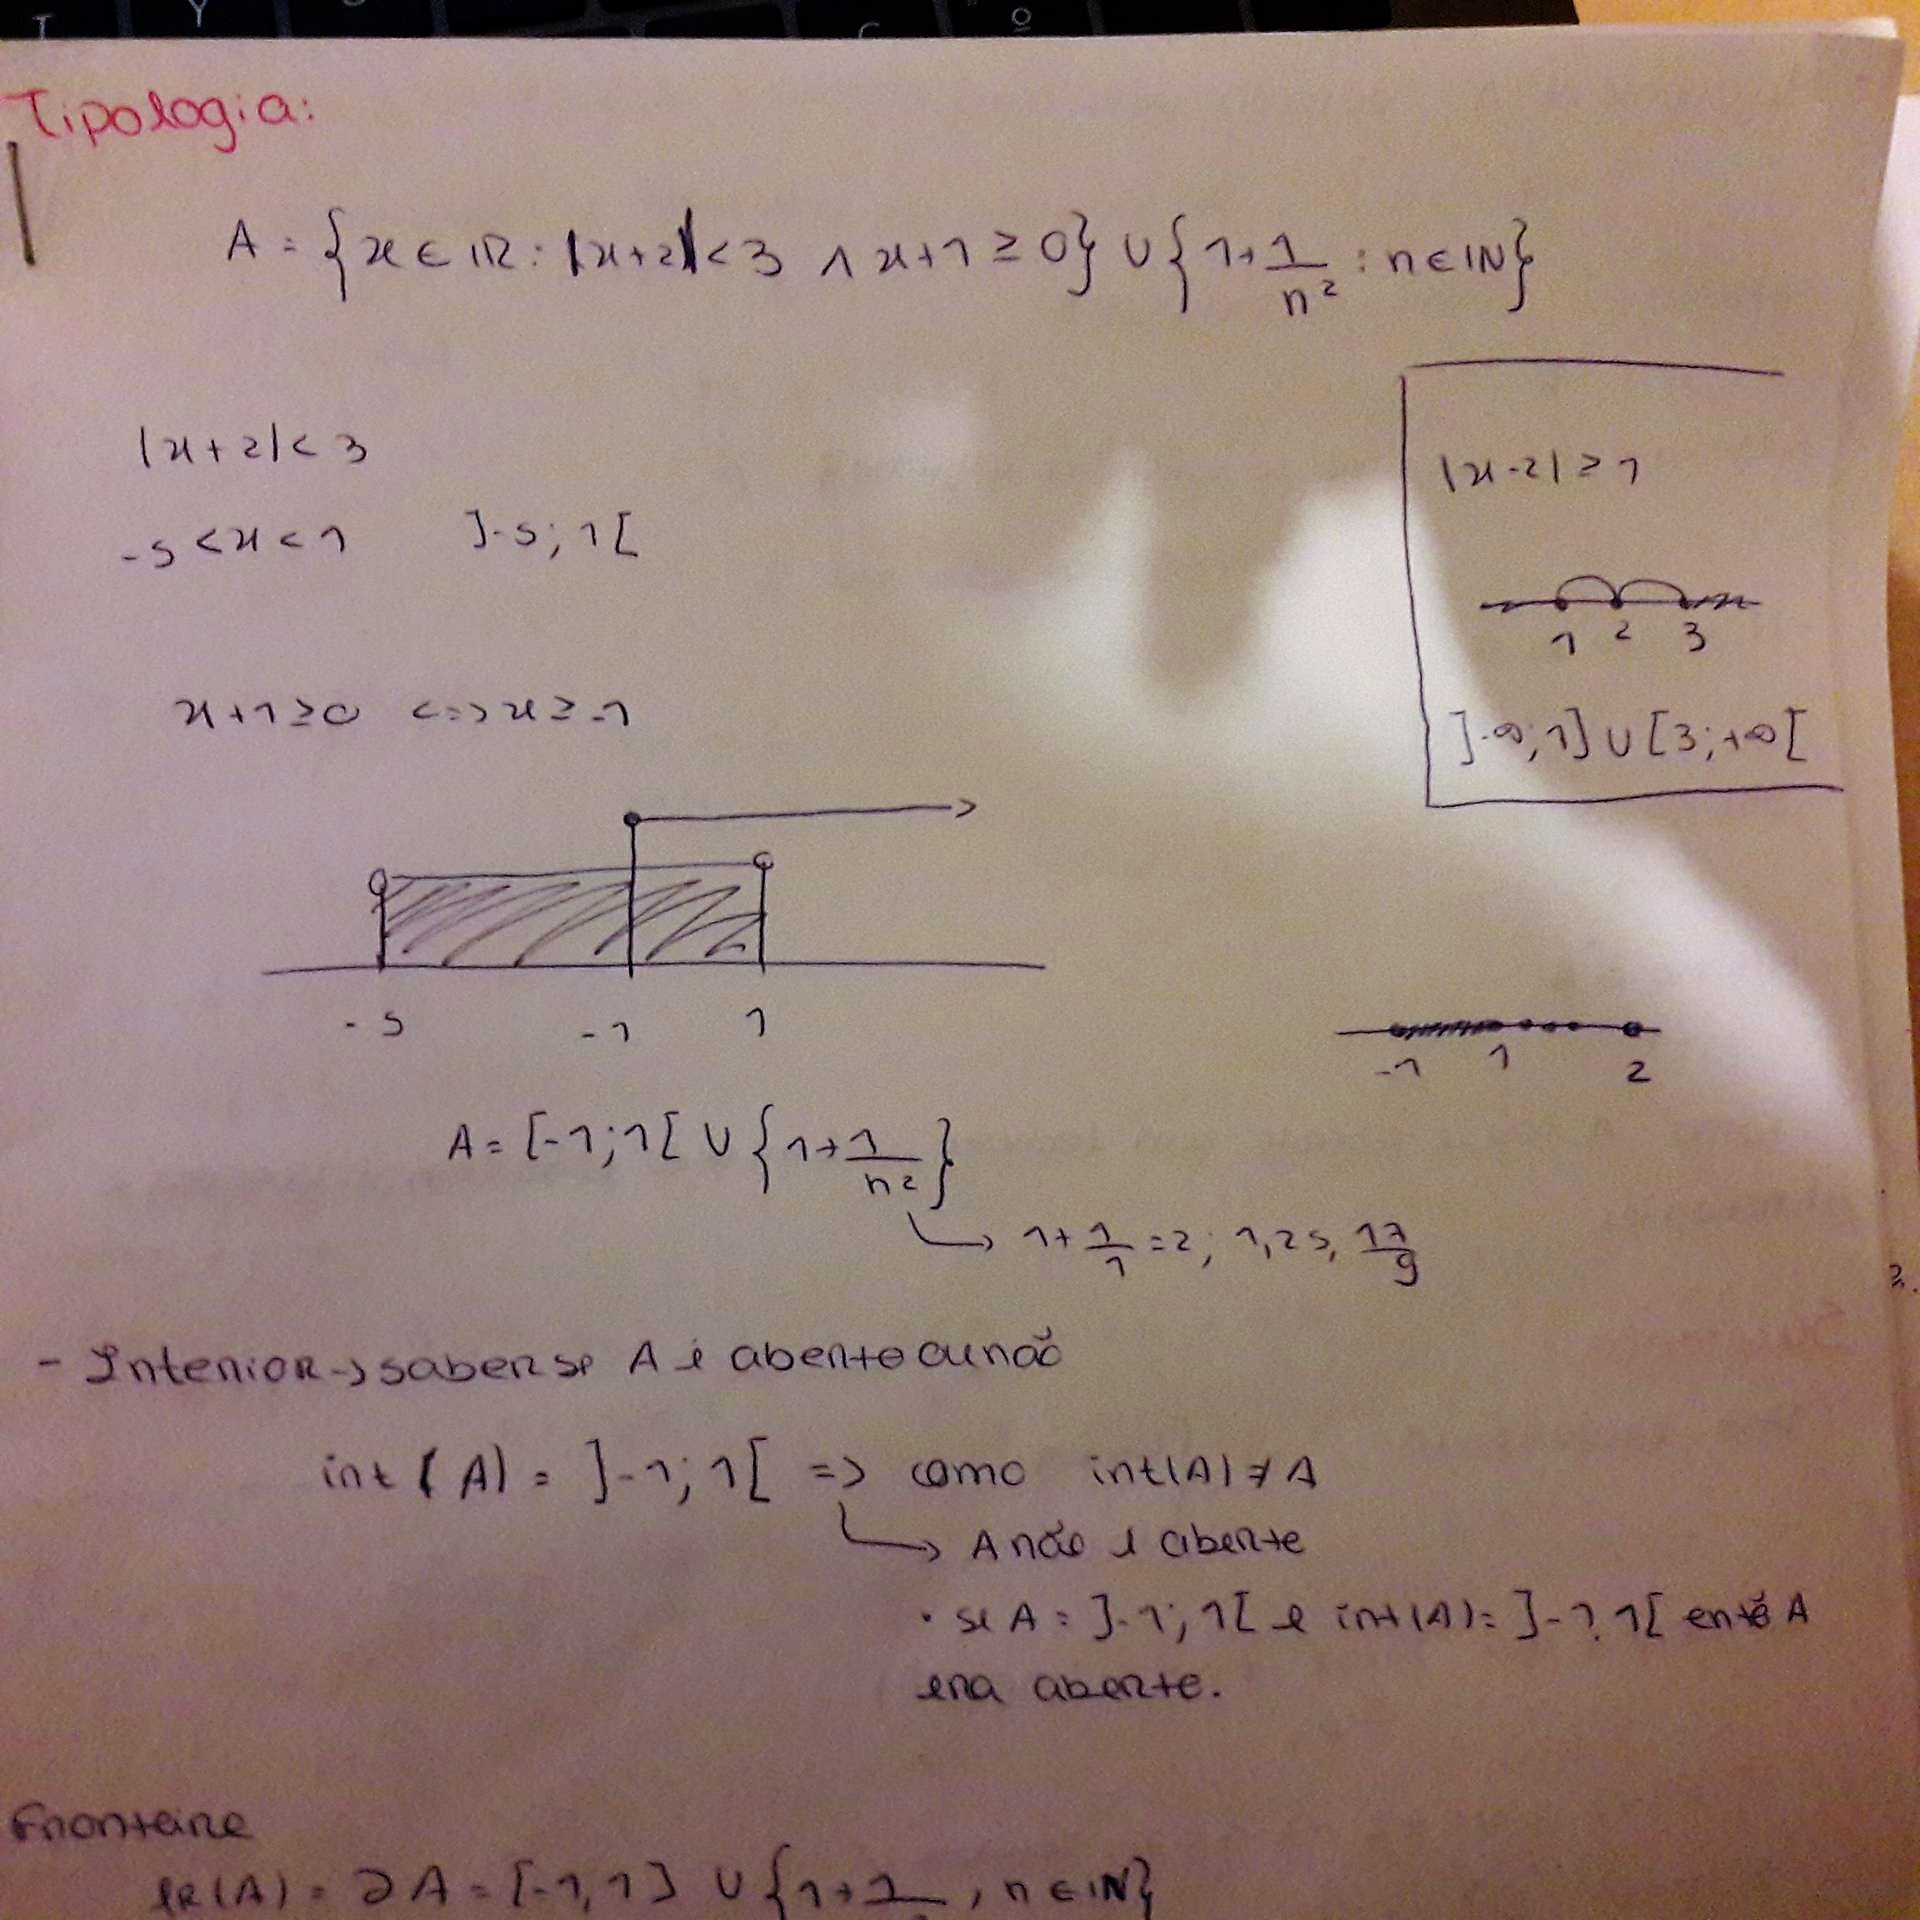 Tipologia:
A = {x ∈ IR : |x+2| < 3 ∧ x+1 ≥ 0} ∪ {1+1/n² : n ∈ IN}
|x+2| < 3
-5 < x < 1 ]-5; 1[
x+1 ≥ 0 <=> x ≥ -1
|x-2| ≥ 1
1 2 3
]-∞; 1] ∪ [3; +∞[
-5 -1 1
-1 1 2
A = [-1; 1[ ∪ {1+1/n²}
↳ 1+1/1 = 2; 1,25, 17/9
- Interior → saber se A é aberto ou não
int(A) = ]-1; 1[ => como int(A) ≠ A
↳ A não é aberto
• se A = ]-1; 1[ e int(A) = ]-1; 1[ entõ A
era aberto.
Fronteira
fR(A) = ∂A = [-1, 1] ∪ {1+1/ , n ∈ IN}